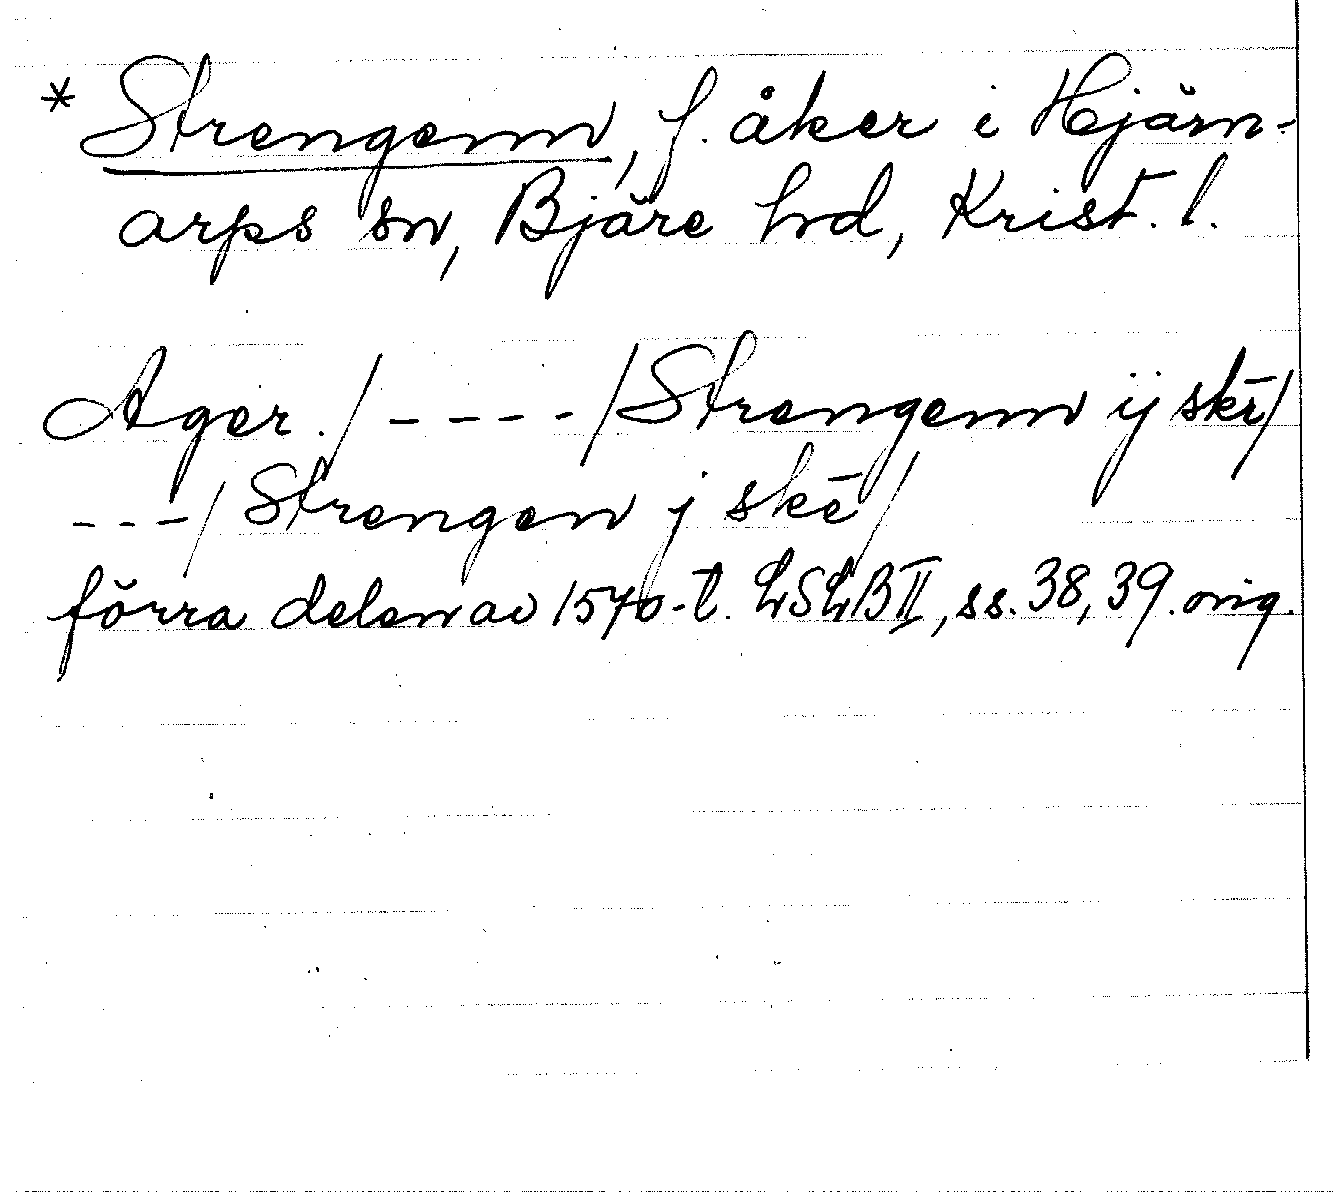 * Strengenn, f. åker i Hjärn-
arps sn, Bjäre hd, Krist. l.
Ager. / - - - - / Strengenn ij skē /
- - - / Strengen j skē /
förra delen av 1570-t. LSLB II, ss. 38, 39. orig.